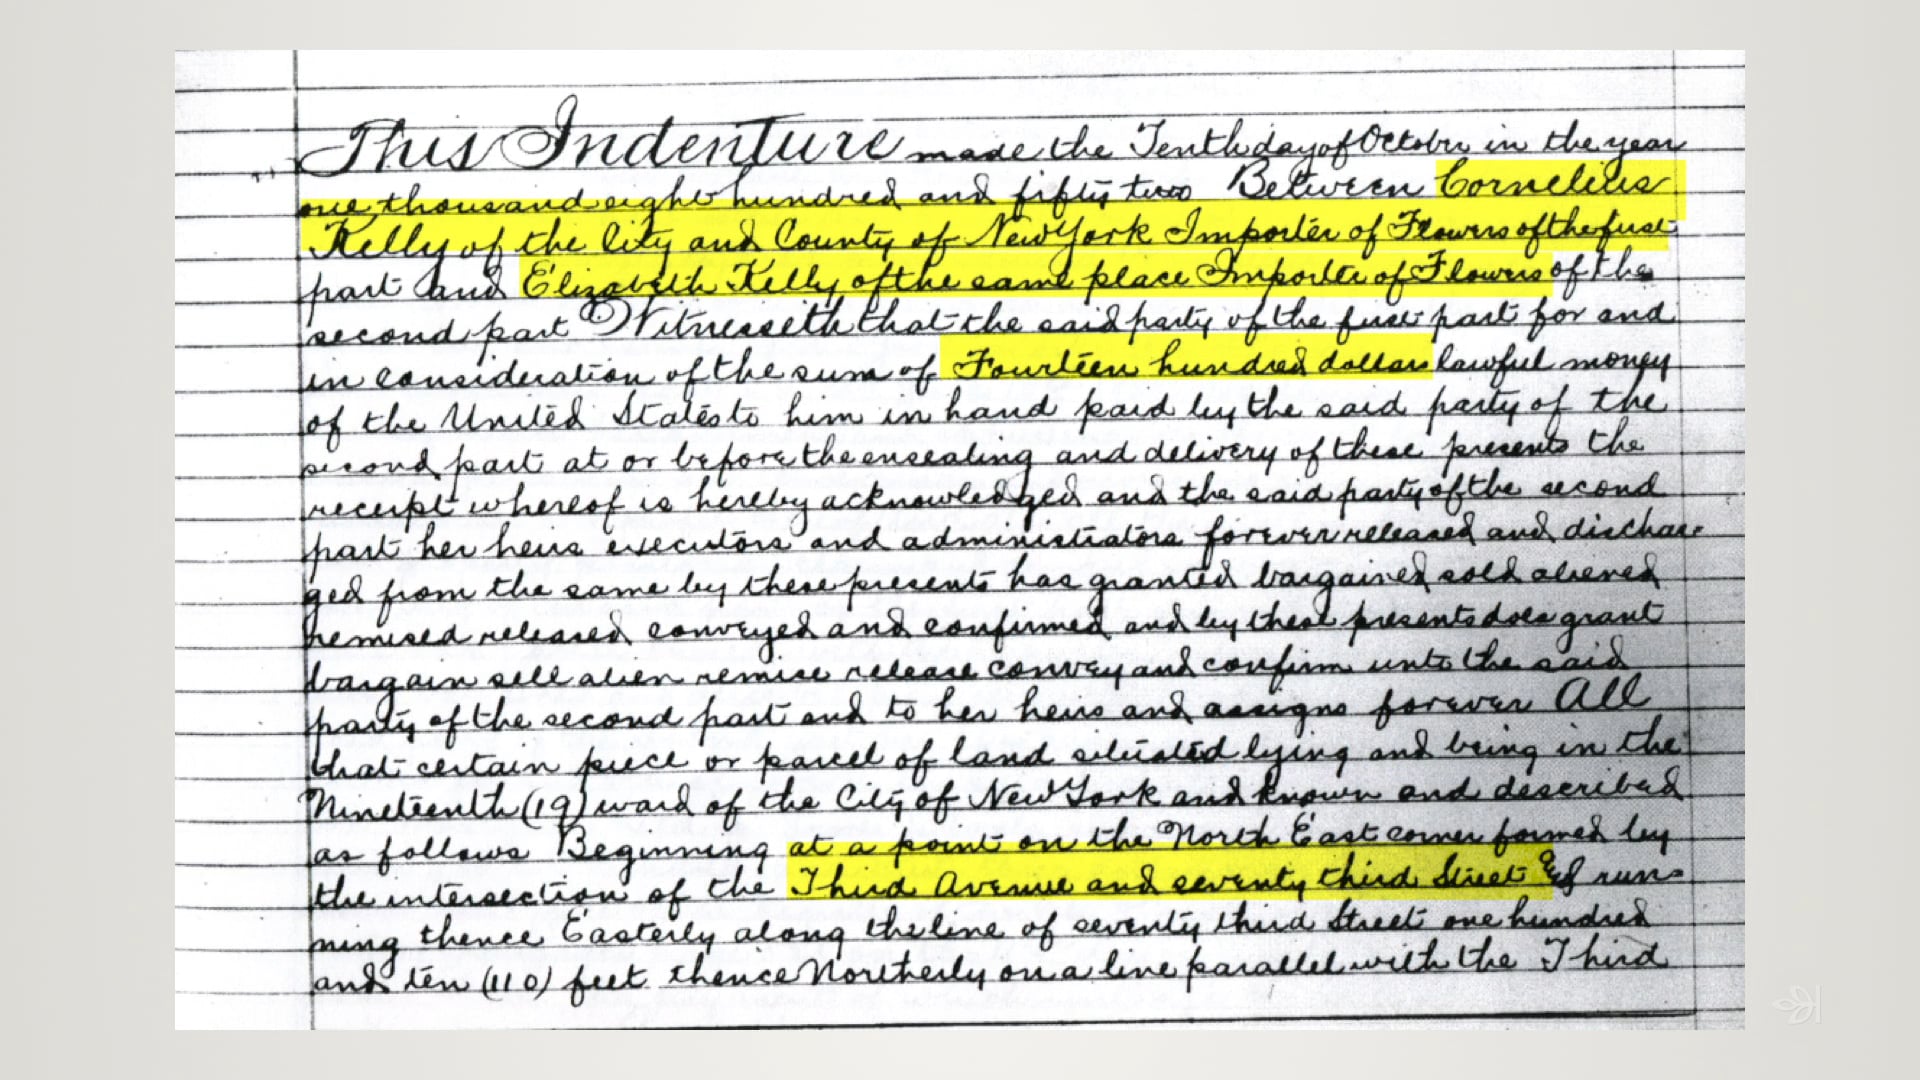 This Indenture made the Tenth day of October in the year
one thousand eight hundred and fifty two Between Cornelius
Kelly of the City and County of New York Importer of Flowers of the first
part and Elizabeth Kelly of the same place Importer of Flowers of the
second part Witnesseth that the said party of the first part for and
in consideration of the sum of Fourteen hundred dollars lawful money
of the United States to him in hand paid by the said party of the
second part at or before the ensealing and delivery of these presents the
receipt whereof is hereby acknowledged and the said party of the second
part her heirs executors and administrators forever released and dischar-
ged from the same by these presents has granted bargained sold aliened
remised released conveyed and confirmed and by these presents does grant
bargain sell alien remise release convey and confirm unto the said
party of the second part and to her heirs and assigns forever All
that certain piece or parcel of land situated lying and being in the
Nineteenth (19) ward of the City of New York and known and described
as follows Beginning at a point on the North East corner formed by
the intersection of the Third Avenue and seventy third Street & run-
ning thence Easterly along the line of seventy third Street one hundred
and ten (110) feet thence Northerly on a line parallel with the Third